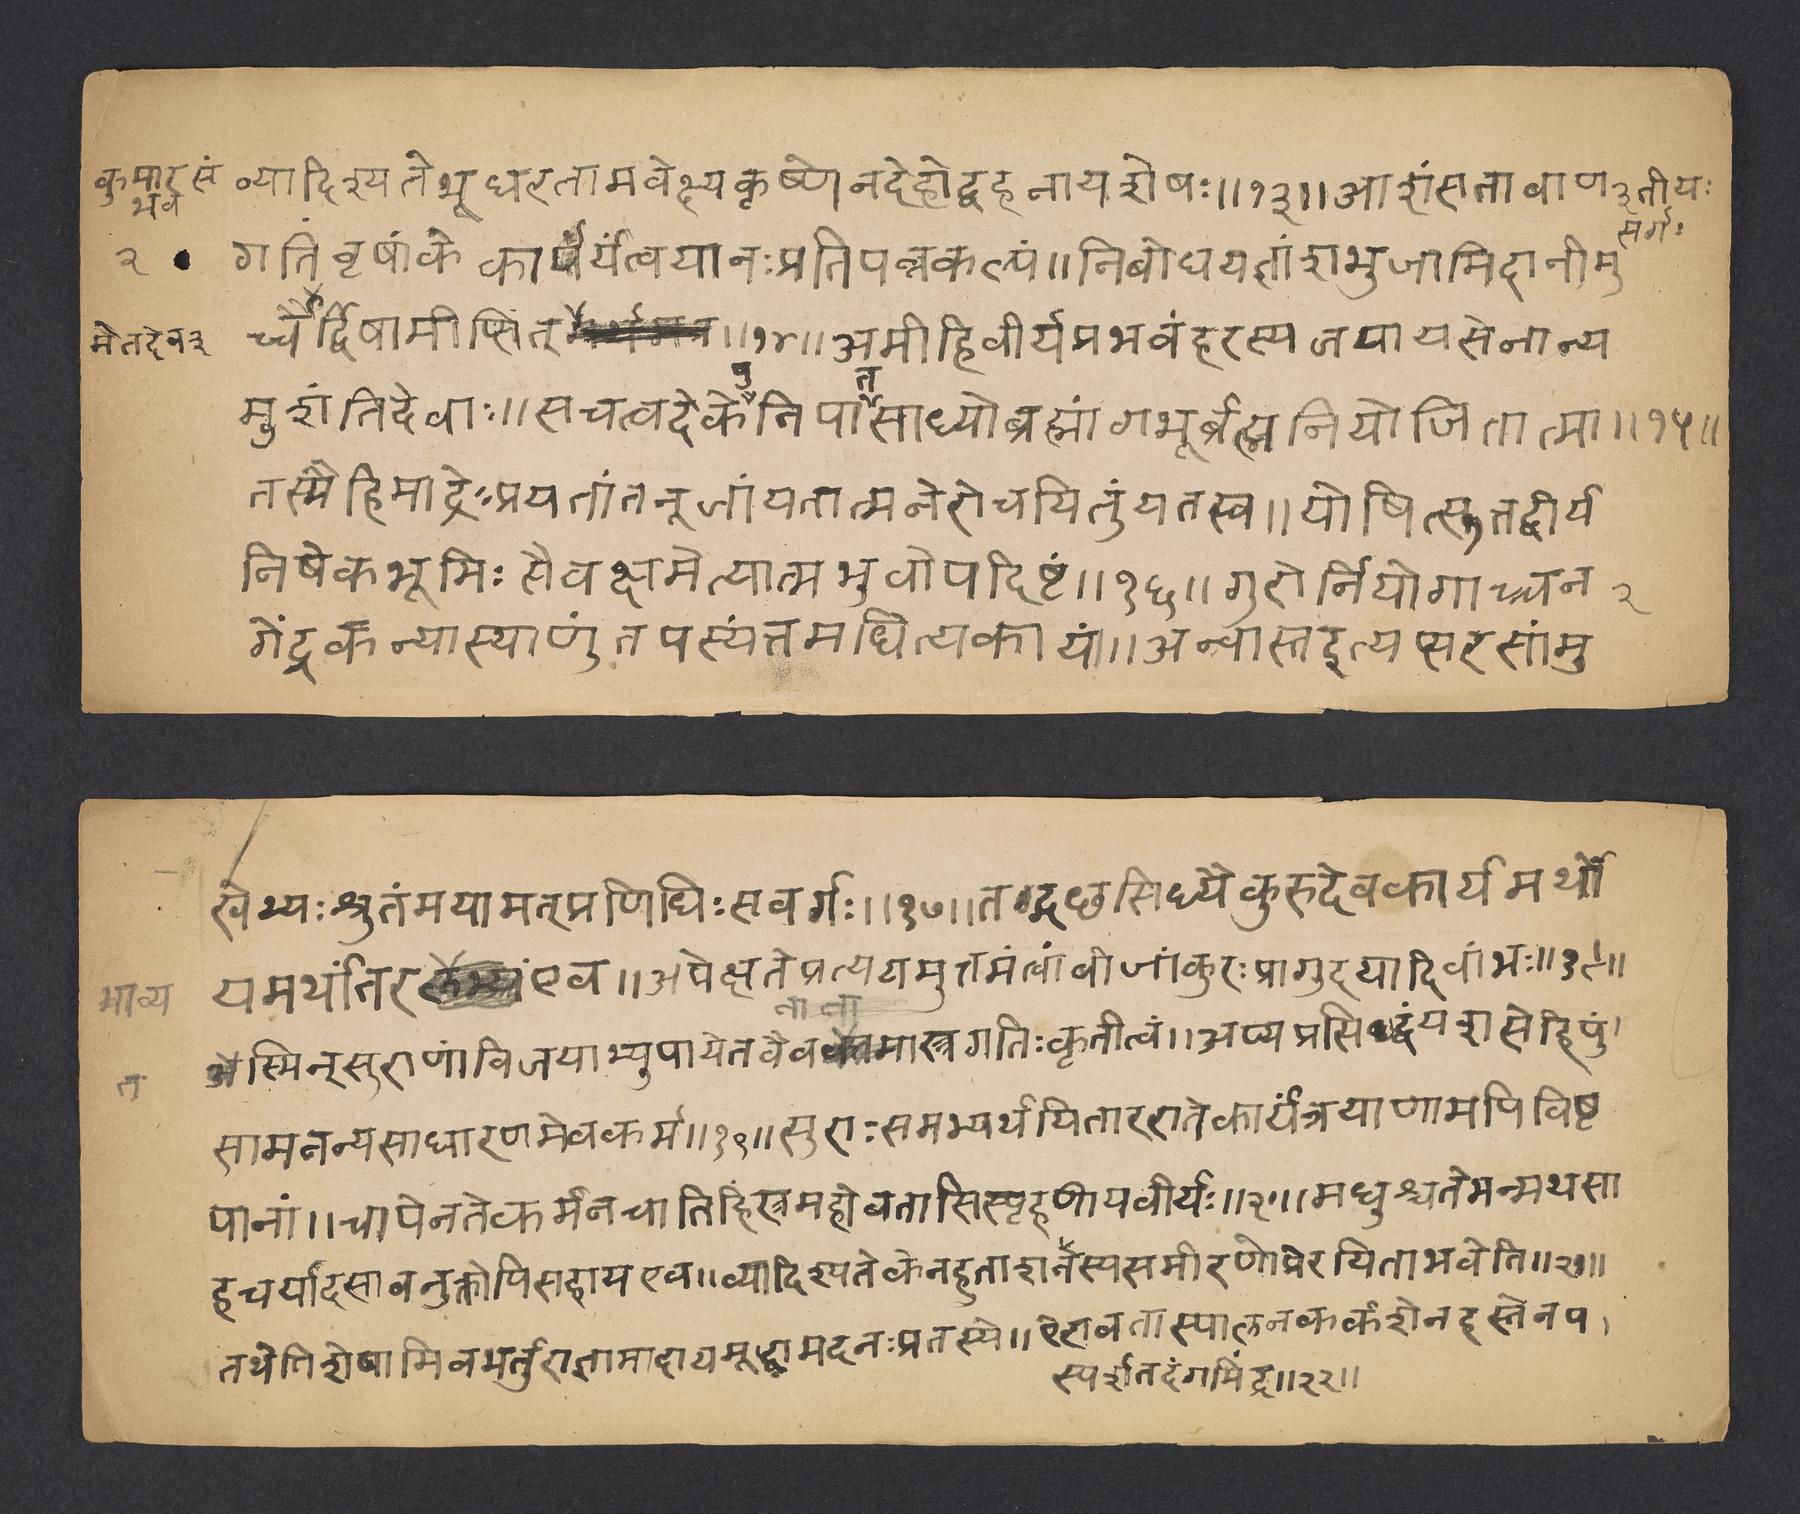 कुमारसं
भव
२
व्यादिश्यतेभूधरतामवेक्ष्यकृष्णेनदेहोद्वहनायशेषः॥१३॥आशंसतावाण
तृतीयः
सर्गः
गतिंवृषांके कार्यंत्वयानःप्रतिपन्नकल्पं॥निबोधयज्ञांशभुजामिदानीमु
मेतदेव३
च्चैर्द्विषामीप्सित् ॥१४॥अमीहिवीर्यप्रभवंहरस्यजयायसेनान्य
मुशंतिदेवाः॥सचत्वदेकेषुनिपातसाध्योब्रह्मांगभूर्ब्रह्मनियोजितात्मा॥१५॥
तस्मैहिमाद्रेःप्रयतांतनूजांयतात्मनेरोचयितुंयतस्व॥योषित्सुतद्वीर्य
निषेकभूमिः सैवक्षमेत्यात्मभुवोपदिष्टं॥१६॥गुरोर्नियोगाच्चन
२
गेंद्रकन्यास्थाणुंतपस्यंतमधित्यकायां॥अन्वास्तइत्यप्सरसांमु
खेभ्यःश्रुतंमयामत्प्रणिधिःसवर्गः॥१७॥तद्गछसिध्यैकुरुदेवकार्यमर्थो
भाव्य
यमर्थांतर एव॥अपेक्षतेप्रत्ययमुत्तमंत्वांवीजांकुरःप्रागुदयादिवांभः॥१८॥
त
स्मिन्सुराणांविजयाभ्युपायेतवैव
ना ना
मास्त्रगतिःकृतीत्वं॥अप्यप्रसिद्धंयशसेहिपुं
सामनन्यसाधारणमेवकर्म॥१९॥सुराःसमभ्यर्थयितारएतेकार्यंत्रयाणामपिविष्ट
पानां॥चापेनतेकर्मनचातिहिंस्त्रमहोवतासिस्पृहणीयवीर्यः॥२०॥मधुश्चतेमन्मथसा
हचर्यादसावनुक्तोपिसहायएव॥व्यादिश्यतेकेनहुताशनस्यसमीरणोप्रेरयिताभवेति॥२१॥
तथेतिशेषामिवभर्तुराज्ञामादायमूर्द्ध्नामदनःप्रतस्थे॥ऐरावतास्पालनकर्कशेनहस्तेनप
स्पर्शतदंगमिंद्रः॥२२॥